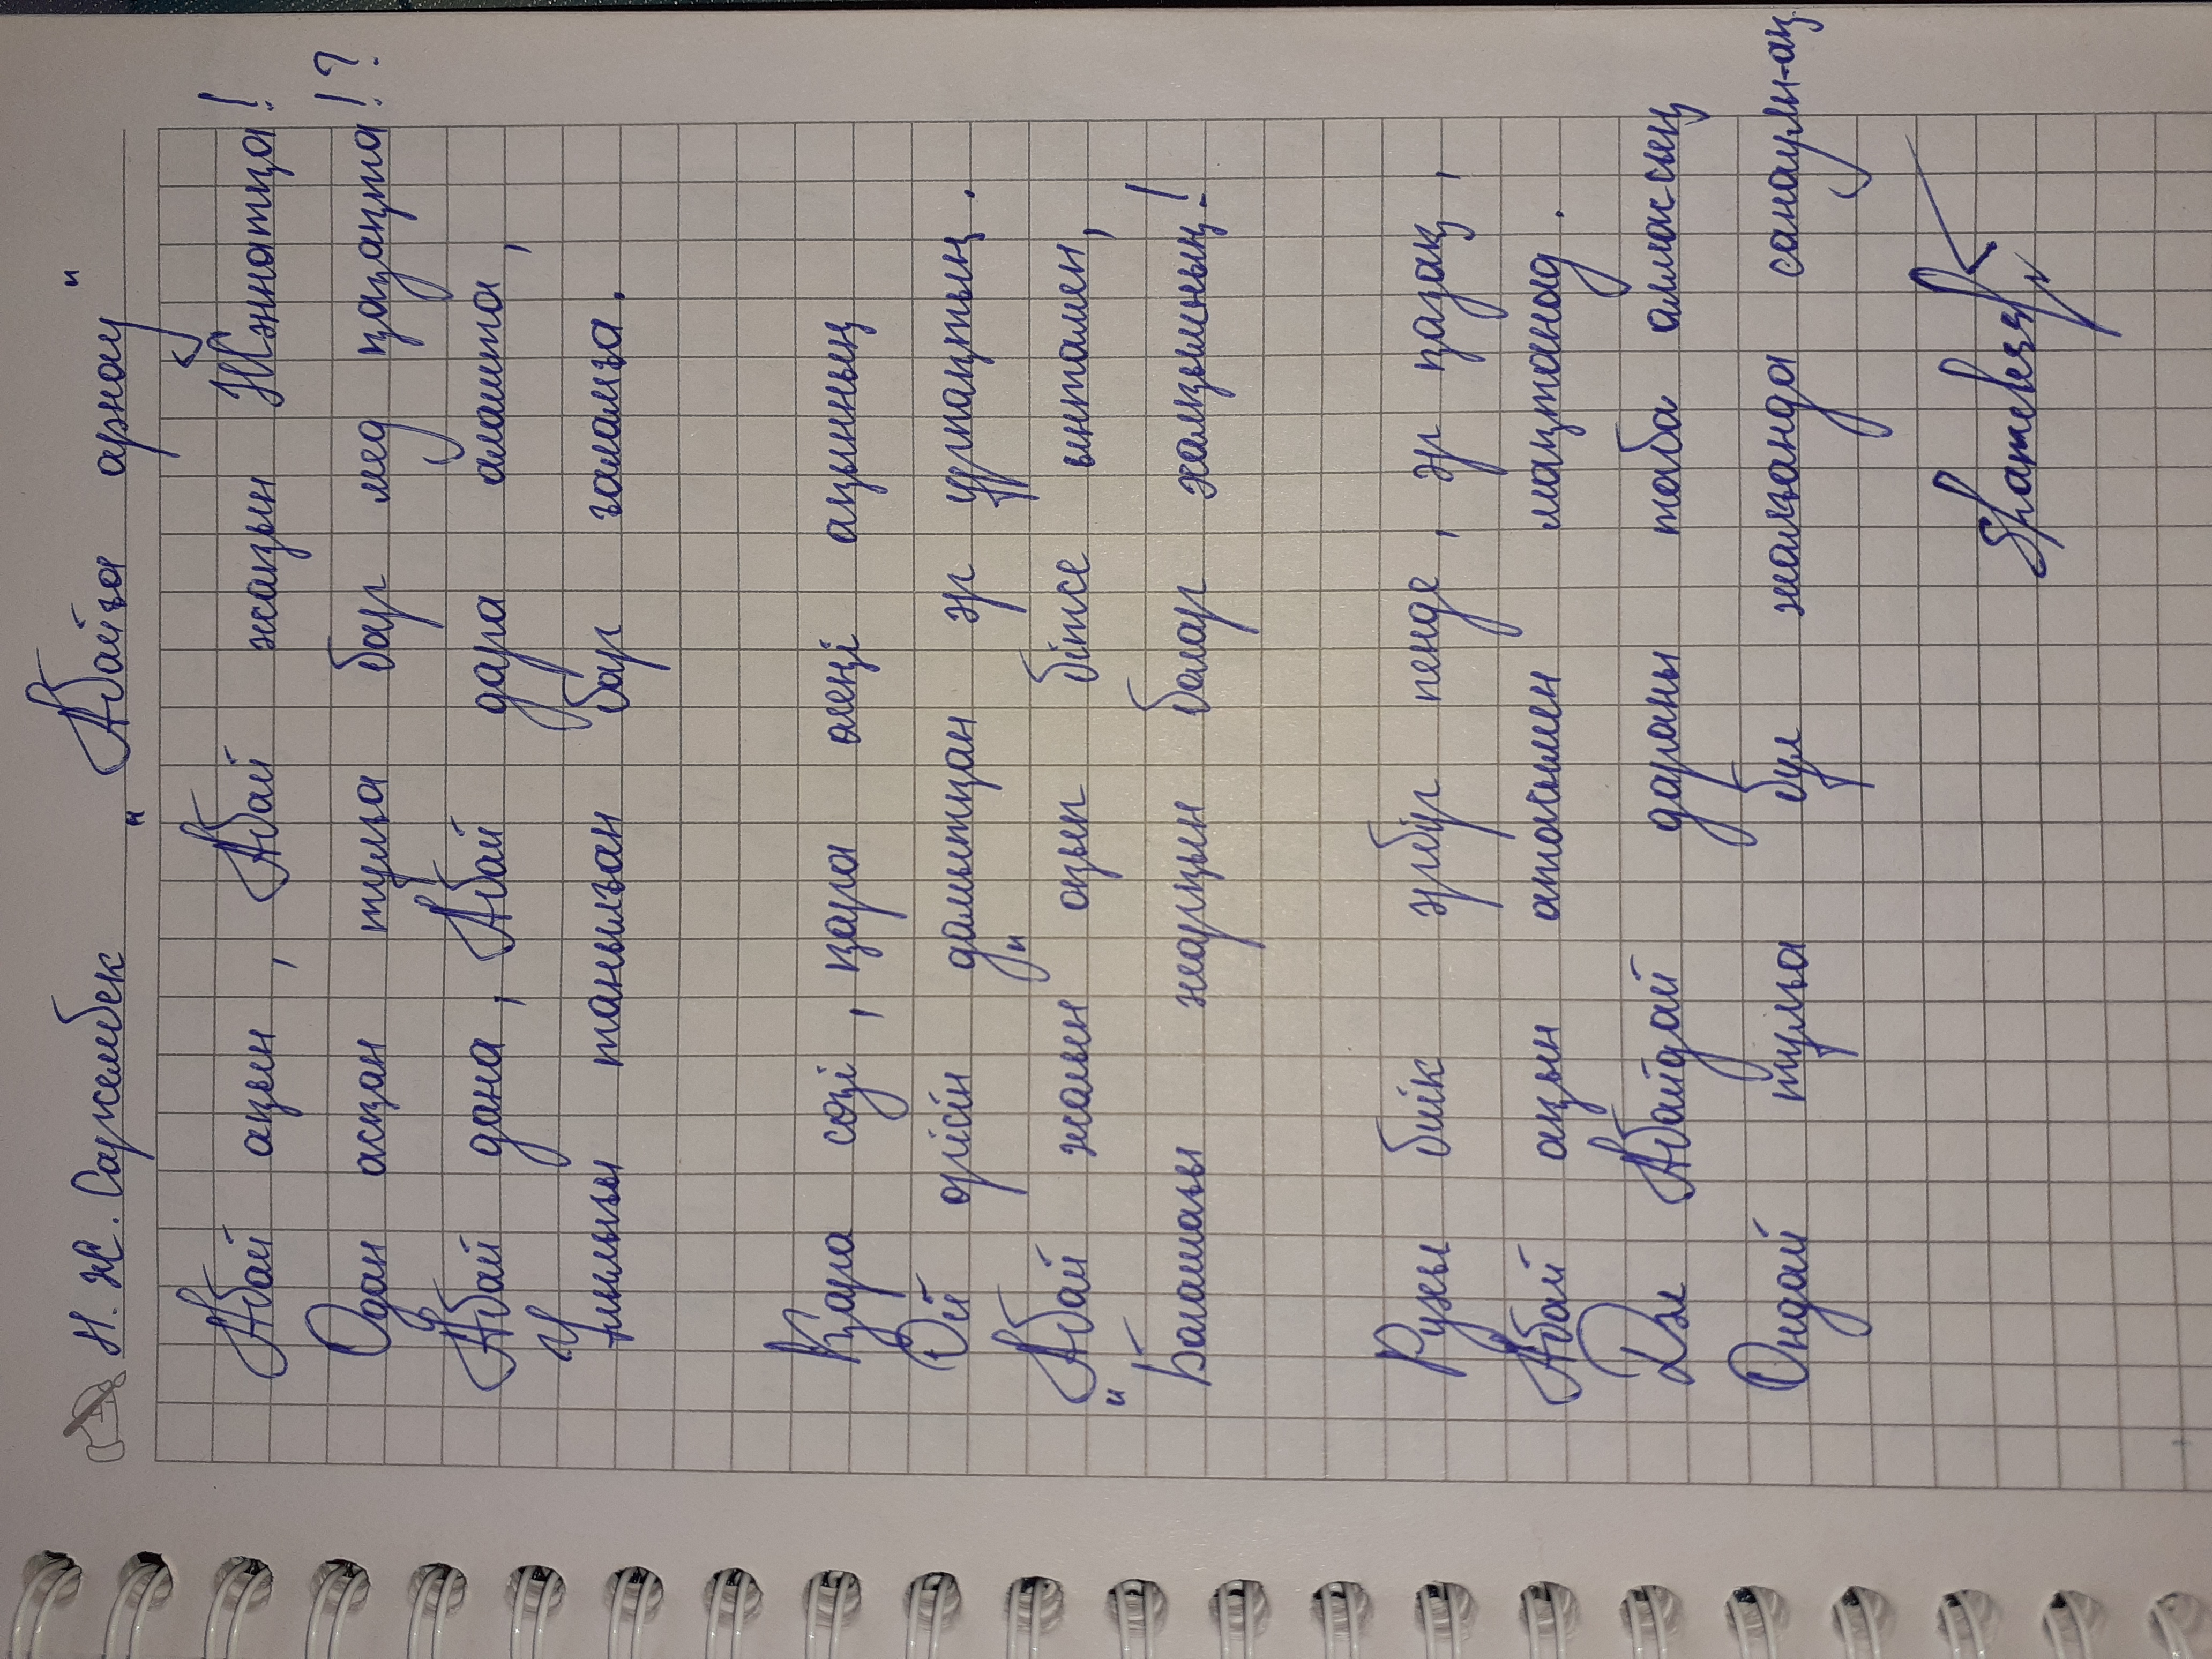 Н. Ж. Саржамбек "Абайға арнау"
Абай ақын, Абай жақын Жәннатқа!
Одан асқан тұлға бар мед қазақта!?
Абай дана, Абай дара алашта,
Ұлылығы танылған бар ғаламға.
Қара сөзі, қара өлеңі ақынның
Ой өрісін дамытқан әр ұрпақтың.
Абай жолын "оқып бітсе ынтамен,
"Болашағы жарқын болар халқымның!
Рухы биік әрбір пенде, әр қазақ,
Абай ақын атағымен мақтанад.
Дәл Абайдай дараны таба алмассың
Ондай тұлға бұл жалғанда санаулы-ақ.